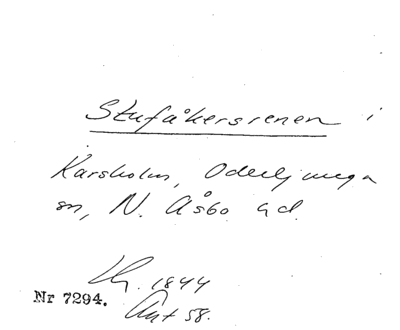 Stufåkersrenen i
Karsholm, Oderljunga
sn, N. Åsbo hd.
1844
Nr 7294.
58.